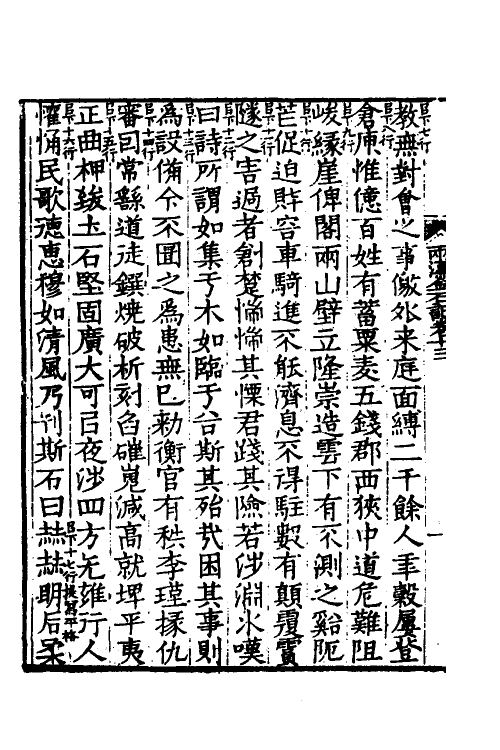 教無對會之事儌外来庭面縛二千餘人年穀屢登
倉庾惟億百姓有蓄粟麦五錢郡西狹中道危難阻
峻緣崖俾閣兩山壁立隆崇造雲下有不測之谿阨
芒促迫財容車騎進不能濟息不得駐數有顛覆霣
隧之害過者創楚惴惴其慄君踐其險若涉淵氷嘆
曰詩所謂如集于木如臨于谷斯其殆㢤困其事則
為設備今不圖之為患無已勅衡官有秩李瑾掾仇
審囙常繇道徒鐉燒破析刻臽磪嵬減高就埤平夷
正曲柙致土石堅固廣大可㠯夜涉四方无雍行人
懽悀民歌德惠穆如清風乃刊斯石曰赫赫明后柔